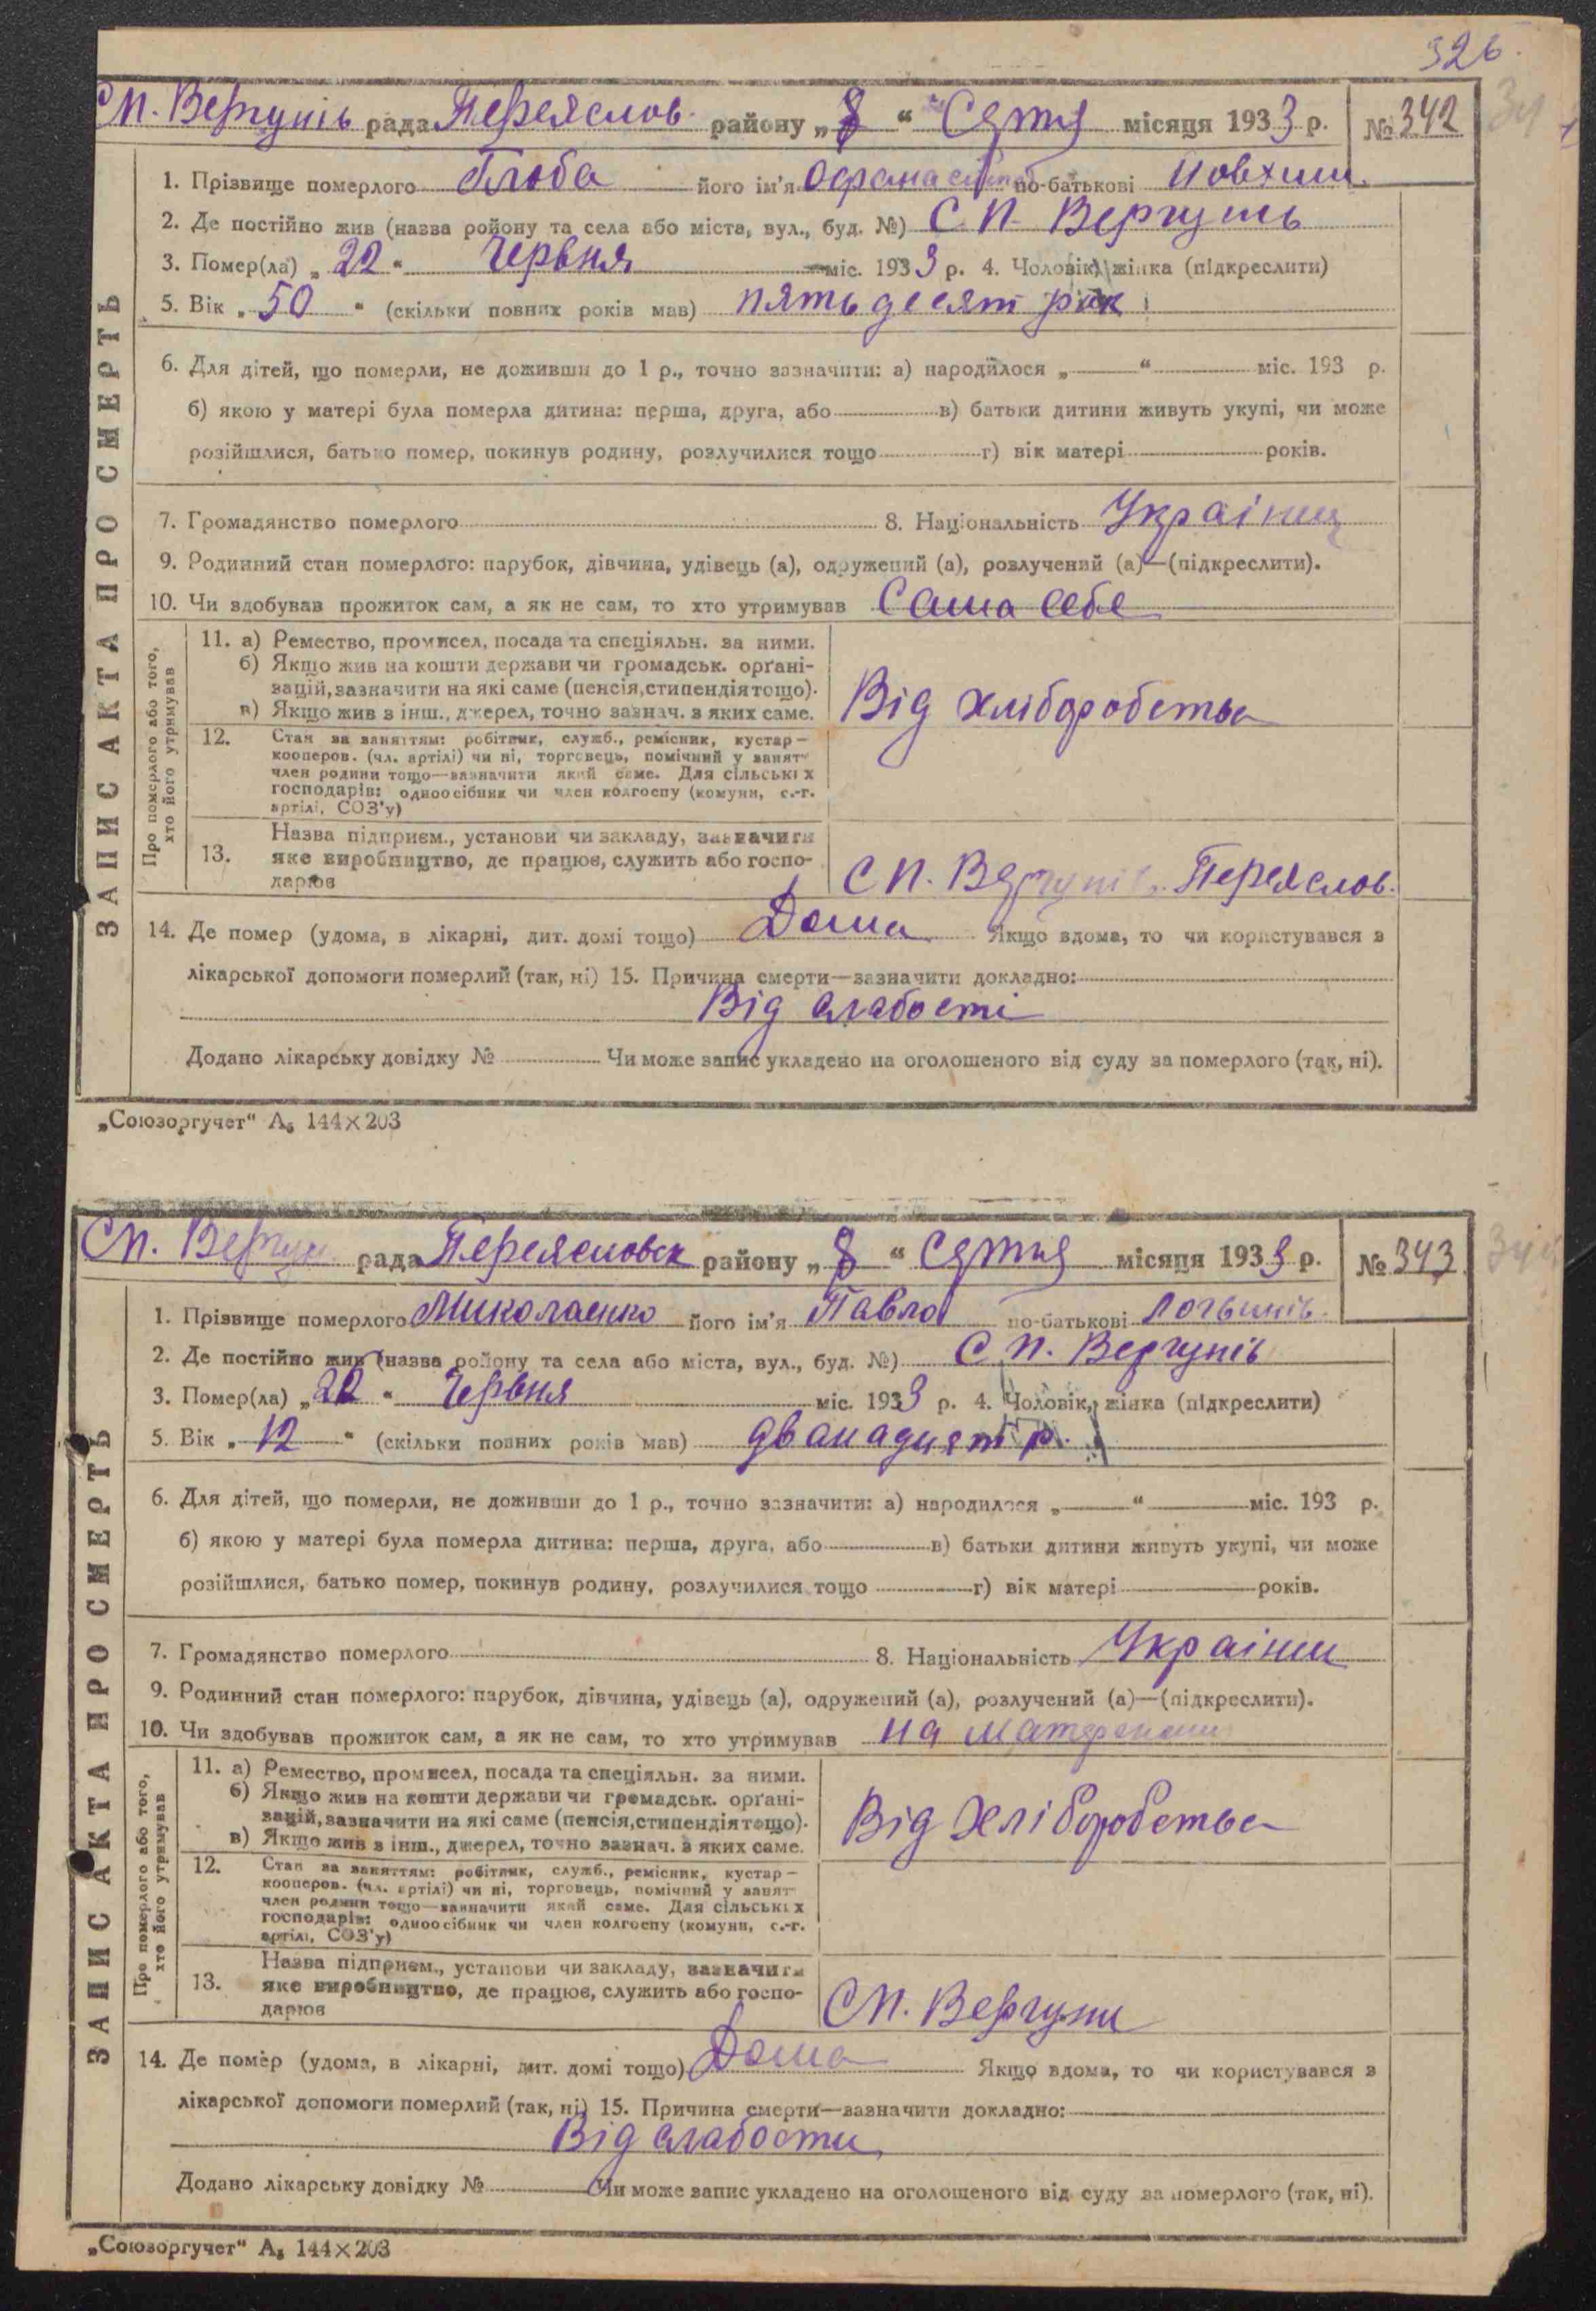 326.
СП. Вергунів рада Переяслов. району „8“ Сятня місяця 1933 р. № 342
1. Прізвище померлого Глоба його ім'я по-батькові Йовхим.
2. Де постійно жив (назва ройону та села або міста, вул., буд. №) С. П. Вергунь
3. Помер(ла) „22“ Червня міс. 1933 р. 4. Чоловік, жінка (підкреслити)
5. Вік „50“ (скільки повних років мав) пятьдесят рок
6. Для дітей, що померли, не доживши до 1 р., точно зазначити: а) народилося „ “ міс. 193 р.
б) якою у матері була померла дитина: перша, друга, або в) батьки дитини живуть укупі, чи може
розійшлися, батько помер, покинув родину, розлучилися тощо г) вік матері років.
7. Громадянство померлого 8. Національність Українц
9. Родинний стан померлого: парубок, дівчина, удівець (а), одружений (а), розлучений (а)—(підкреслити).
10. Чи здобував прожиток сам, а як не сам, то хто утримував Сама себе
ЗАПИС АКТА ПРО СМЕРТЬ
Про померлого або того,
хто його утримував
11. а) Ремество, промисел, посада та спеціяльн. за ними.
б) Якщо жив на кошти держави чи громадськ. орґані-
зацій, зазначити на які саме (пенсія, стипендія тощо).
в) Якщо жив з інш., джерел, точно зазнач. з яких саме.
Від хліборобства
12. Стан за заняттям: робітник, служб., ремісник, кустар—
кооперов. (чл. артілі) чи ні, торговець, помічний у занят
член родини тощо—зазначити який саме. Для сільських
господарів: одноосібник чи член колгоспу (комуни, с.-г.
артілі, СОЗ'у)
13. Назва підприєм., установи чи закладу, зазначити
яке виробництво, де працює, служить або госпо-
дарює
СП. Вергунів. Переяслов.
14. Де помер (удома, в лікарні, дит. домі тощо) Дома Якщо вдома, то чи користувався з
лікарської допомоги померлий (так, ні) 15. Причина смерти—зазначити докладно:
Від слабости
Додано лікарську довідку № Чи може запис укладено на оголошеного від суду за померлого (так, ні).
„Союзоргучет“ А₅ 144×203
СП. Вергун рада Переясловск району „8“ Сятня місяця 1933 р. № 343
1. Прізвище померлого Миколаенко його ім'я Павло по-батькові Логвинів.
2. Де постійно жив (назва ройону та села або міста, вул., буд. №) С. П. Вергунів
3. Помер(ла) „22“ Червня міс. 1933 р. 4. Чоловік, жінка (підкреслити)
5. Вік „12“ (скільки повних років мав) дванадцят р.
6. Для дітей, що померли, не доживши до 1 р., точно зазначити: а) народилося „ “ міс. 193 р.
б) якою у матері була померла дитина: перша, друга, або в) батьки дитини живуть укупі, чи може
розійшлися, батько помер, покинув родину, розлучилися тощо г) вік матері років.
7. Громадянство померлого 8. Національність Україниц
9. Родинний стан померлого: парубок, дівчина, удівець (а), одружений (а), розлучений (а)—(підкреслити).
10. Чи здобував прожиток сам, а як не сам, то хто утримував на
ЗАПИС АКТА ПРО СМЕРТЬ
Про померлого або того,
хто його утримував
11. а) Ремество, промисел, посада та спеціяльн. за ними.
б) Якщо жив на кошти держави чи громадськ. орґані-
зацій, зазначити на які саме (пенсія, стипендія тощо).
в) Якщо жив з інш., джерел, точно зазнач. з яких саме.
Від хліборобства
12. Стан за заняттям: робітник, служб., ремісник, кустар—
кооперов. (чл. артілі) чи ні, торговець, помічний у занят
член родини тощо—зазначити який саме. Для сільських
господарів: одноосібник чи член колгоспу (комуни, с.-г.
артілі, СОЗ'у)
13. Назва підприєм., установи чи закладу, зазначити
яке виробництво, де працює, служить або госпо-
дарює
СП. Вергуни
14. Де помер (удома, в лікарні, дит. домі тощо) Дома Якщо вдома, то чи користувався з
лікарської допомоги померлий (так, ні) 15. Причина смерти—зазначити докладно:
Від слабости
Додано лікарську довідку № Чи може запис укладено на оголошеного від суду за померлого (так, ні).
„Союзоргучет“ А₅ 144×203